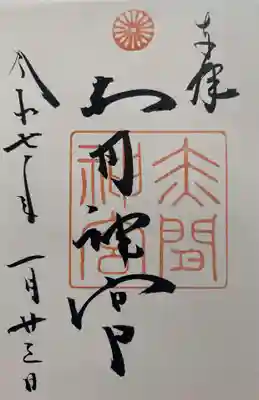 奉拝
赤間神宮
赤間
神宮
令和七年 一月廿三日